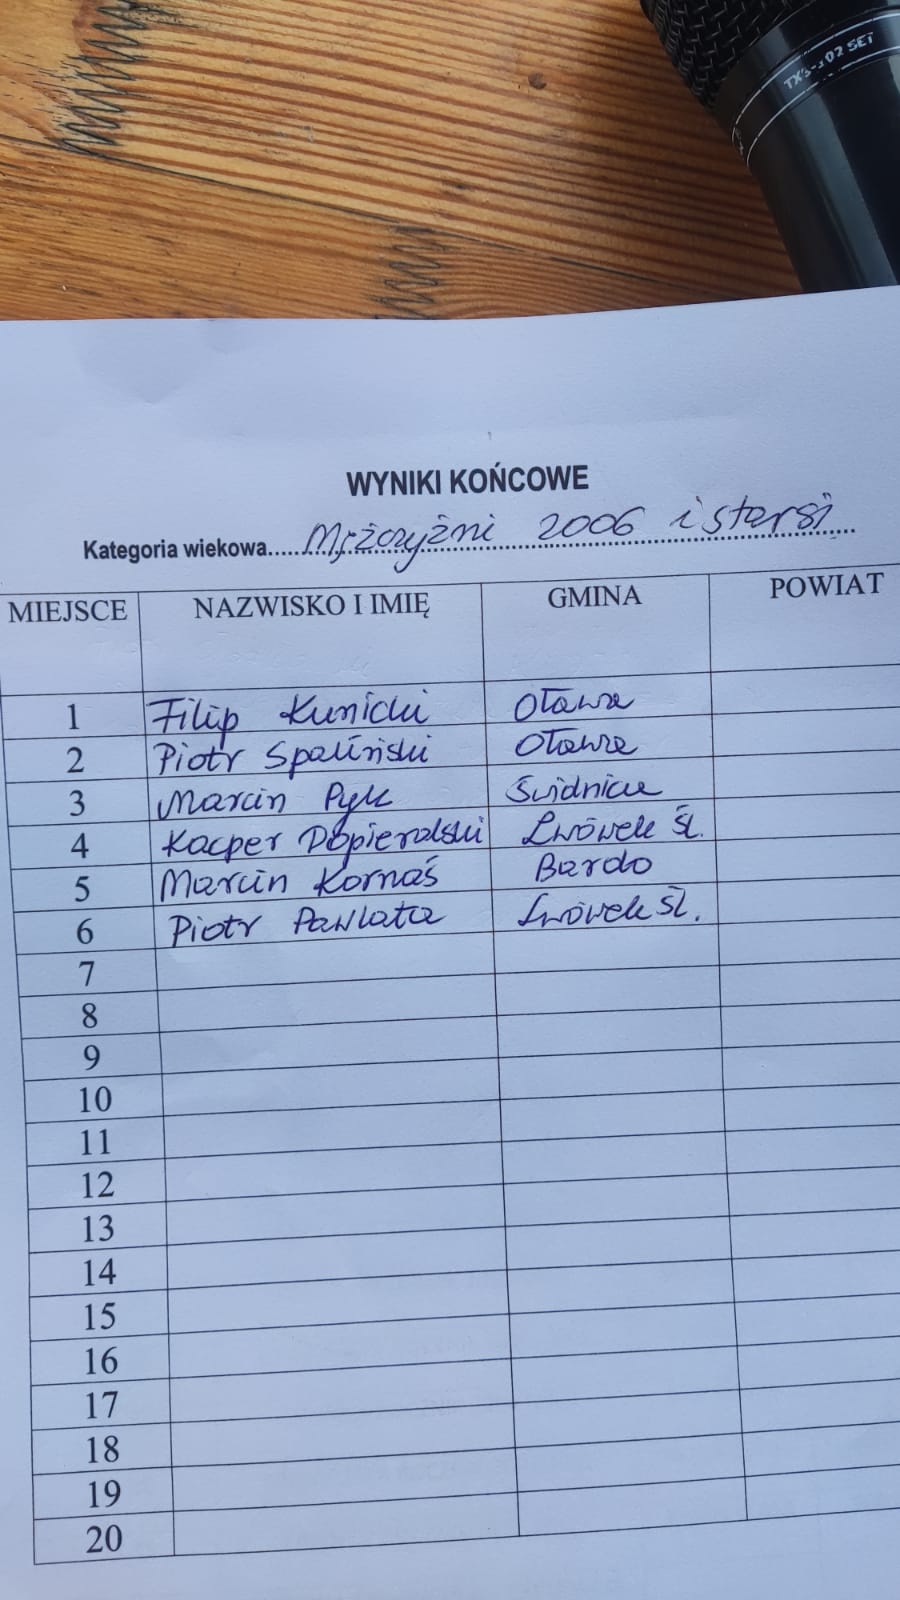 TXS-202 SET
WYNIKI KOŃCOWE
Kategoria wiekowa.....Mężczyźni 2006 i starsi...
MIEJSCE NAZWISKO I IMIĘ GMINA POWIAT
1 Filip Kunicki Oława
2 Piotr Spaliński Oława
3 Marcin Pyk Świdnica
4 Kacper Popieralski Lwówek Śl.
5 Marcin Kornaś Bardo
6 Piotr Pawlata Lwówek Śl.
7
8
9
10
11
12
13
14
15
16
17
18
19
20